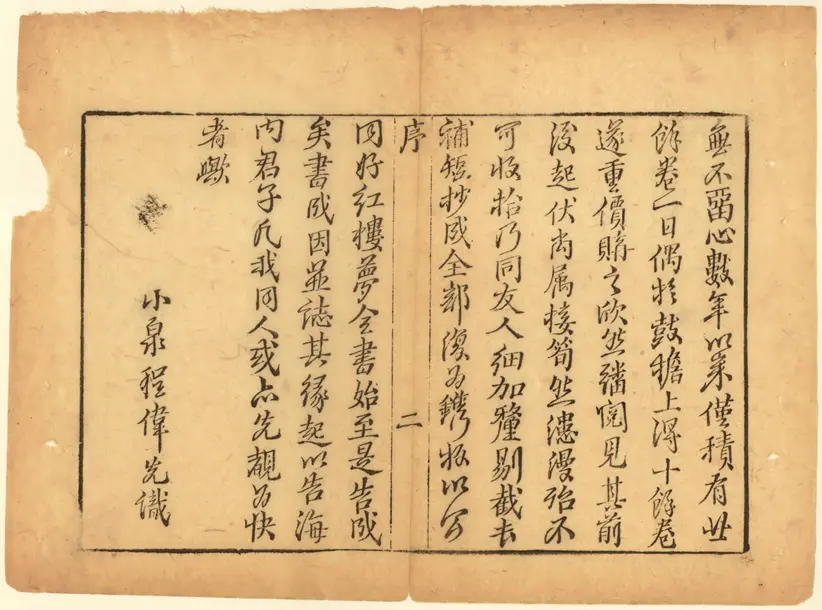 無不畱心數年以来僅積有廿
餘卷一日偶於鼓擔上得十餘卷
遂重價購之欣然繙閱見其前
後起伏尚属接筍然漶漫殆不
可收拾乃同友人細加釐剔截長
補短抄成全部復為鐫板以公
序
二
同好紅樓夢全書始至是告成
矣書成因並誌其緣起以告海
內君子凡我同人或亦先覩為快
者歟
小泉程偉元識